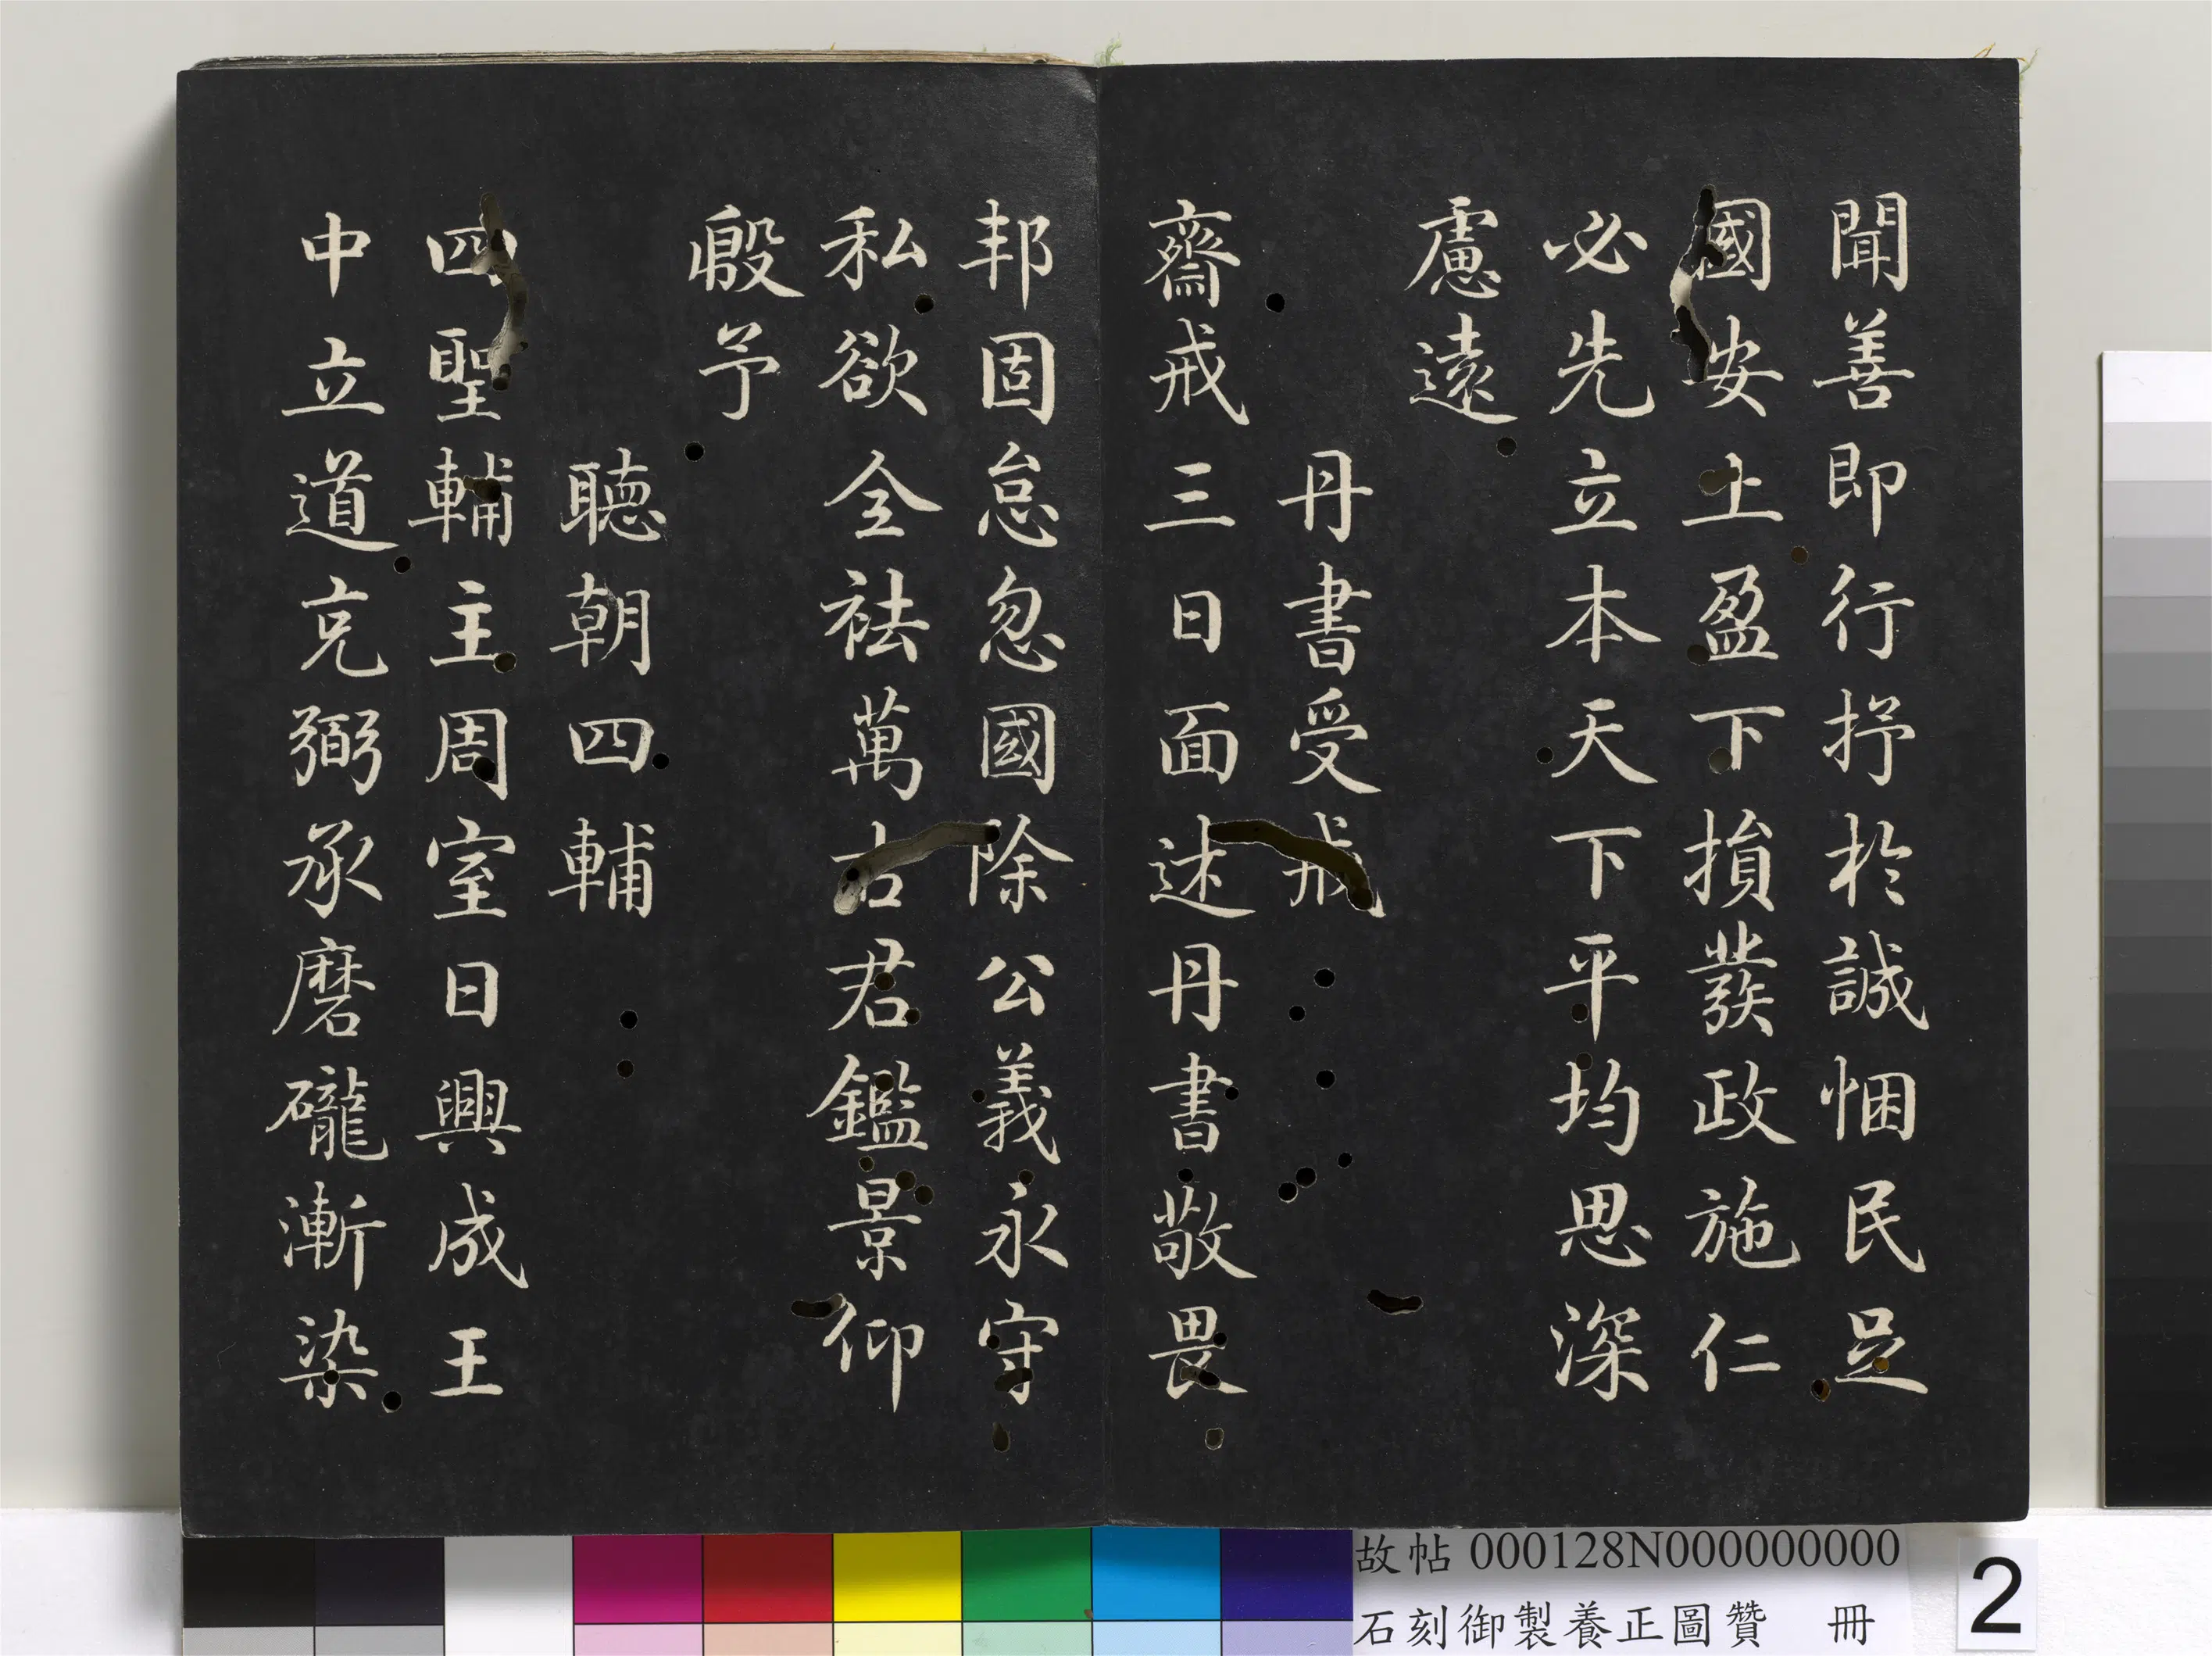 聞善即行抒於誠悃民足
國安土盈下損發政施仁
必先立本天下平均思深
慮遠
丹書受戒
齋戒三日面述丹書敬畏
邦固怠忽國除公義永守
私欲全祛萬古君鑑景仰
殷予
聽朝四輔
四聖輔主周室日興成王
中立道充弼承磨礲漸染
故帖 000128N000000000
石刻御製養正圖贊 冊
2